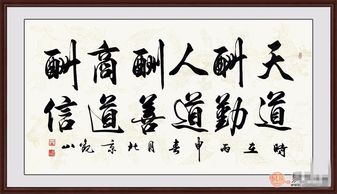 天道
酬勤
人道
酬善
商道
酬信
時在丙申春月北京 山